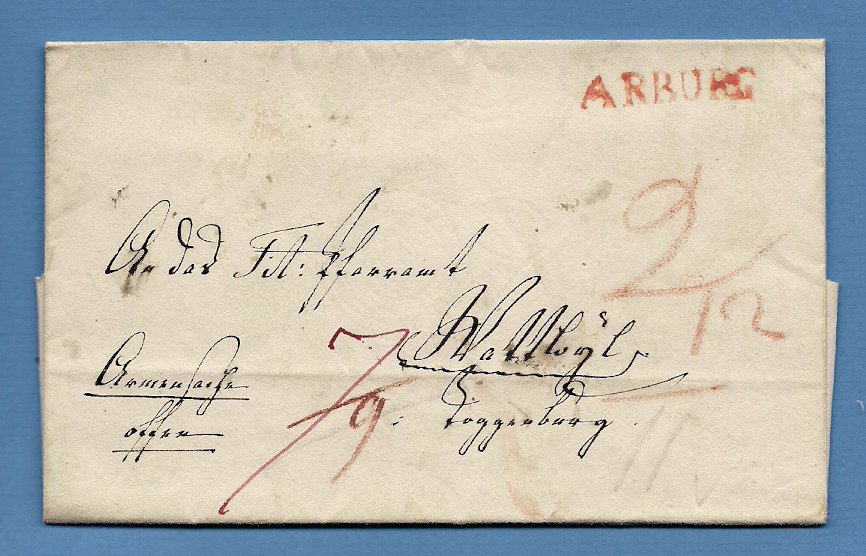 ARBURG
An das Tit: Pfarramt
Wattwyl
Toggenburg.
Armensache
offen
7/9.
2/12